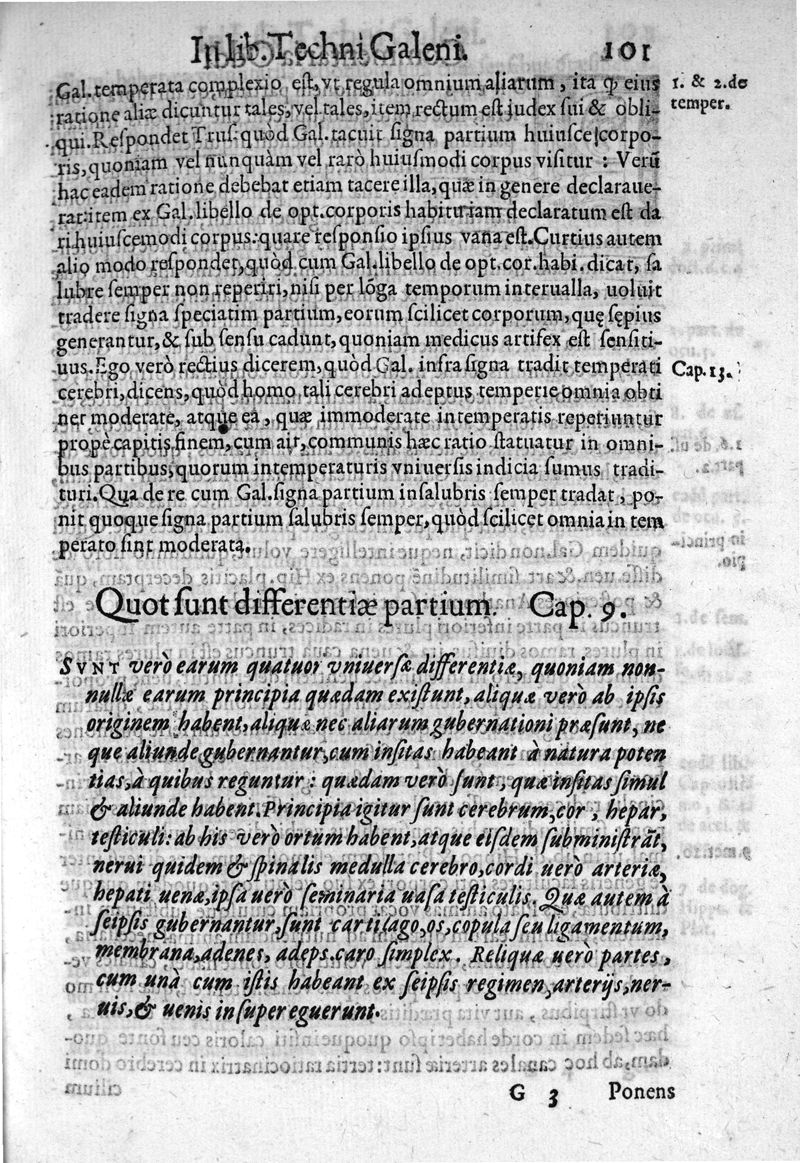 In lib. Techni Galeni. 101
Gal. temperata complexio est, vt regula omnium aliarum, ita ꝙ eius 1. & 2. de
ratione aliæ dicuntur tales, vel tales, item rectum est judex sui & obli- temper.
qui. Respondet Trus. quòd Gal. tacuit signa partium huiusce corpo-
ris, quoniam vel nunquàm vel rarò huiusmodi corpus visitur: Verũ
hac eadem ratione debebat etiam tacere illa, quæ in genere declaraue-
rat: item ex Gal. libello de opt. corporis habitu: iam declaratum est da
ri huiuscemodi corpus: quare responsio ipsius vana est. Curtius autem
alio modo respondet, quòd cum Gal. libello de opt. cor. habi. dicat, sa
lubre semper non reperiri, nisi per lõga temporum interualla, uoluit
tradere signa speciatim partium, eorum scilicet corporum, quę sępius
generantur, & sub sensu cadunt, quoniam medicus artifex est sensiti-
uus. Ego verò rectius dicerem, quòd Gal. infra signa tradit temperati Cap. 13.
cerebri, dicens, quòd homo tali cerebri adeptus temperie omnia obti
net moderate, atque ea, quæ immoderate intemperatis reperiuntur
propè capitis finem, cum ait, communis hæc ratio statuatur in omni-
bus partibus, quorum intemperaturis vniuersis indicia sumus tradi-
turi. Qua de re cum Gal. signa partium insalubris semper tradat, po-
nit quoque signa partium salubris semper, quòd scilicet omnia in tem
perato sint moderata.
Quot sunt differentiæ partium. Cap. 9.
SVNT verò earum quatuor vniuersæ differentiæ, quoniam non-
nullæ earum principia quædam existunt, aliquæ verò ab ipsis
originem habent, aliquæ nec aliarum gubernationi præsunt, ne
que aliunde gubernantur, cum insitas habeant à natura poten
tias, à quibus reguntur: quædam verò sunt, quæ insitas simul
& aliunde habent. Principia igitur sunt cerebrum, cor, hepar,
testiculi: ab his verò ortum habent, atque eisdem subministrãt,
nerui quidem & spinalis medulla cerebro, cordi uerò arteriæ,
hepati uenæ, ipsa uerò seminaria uasa testiculis. Quæ autem à
seipsis gubernantur, sunt cartilago, os, copula seu ligamentum,
membrana, adenes, adeps. caro simplex. Reliquæ uerò partes,
cum unà cum istis habeant ex seipsis regimen, arterijs, ner-
uis, & uenis insuper eguerunt.
G 3 Ponens